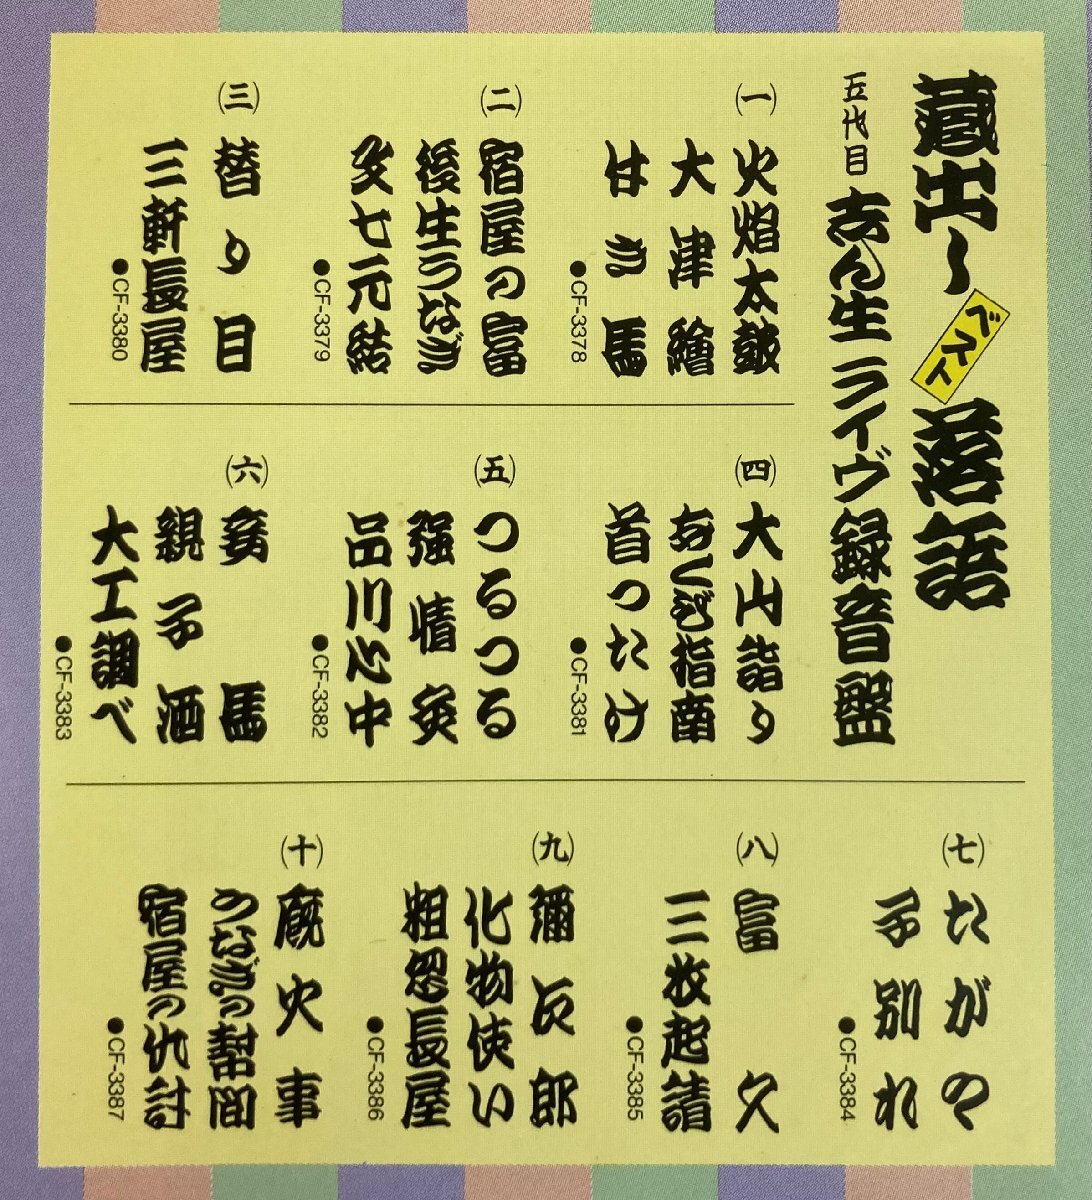 蔵出し ベスト 落語
五代目 志ん生 ライヴ録音盤
(一) 火焔太鼓
大津繪
はき馬
●CF-3378
(二) 宿屋の富
後生うなぎ
文七元結
●CF-3379
(三) 替り目
三軒長屋
●CF-3380
(四) 大山詣り
あくび指南
首ったけ
●CF-3381
(五) つるつる
强情灸
品川心中
●CF-3382
(六) 妾馬
親子酒
大工調べ
●CF-3383
(七) たがや
子別れ
●CF-3384
(八) 富久
三枚起請
●CF-3385
(九) 彌次郎
化物使い
粗忽長屋
●CF-3386
(十) 廐火事
うなぎの幇間
宿屋の仇討
●CF-3387